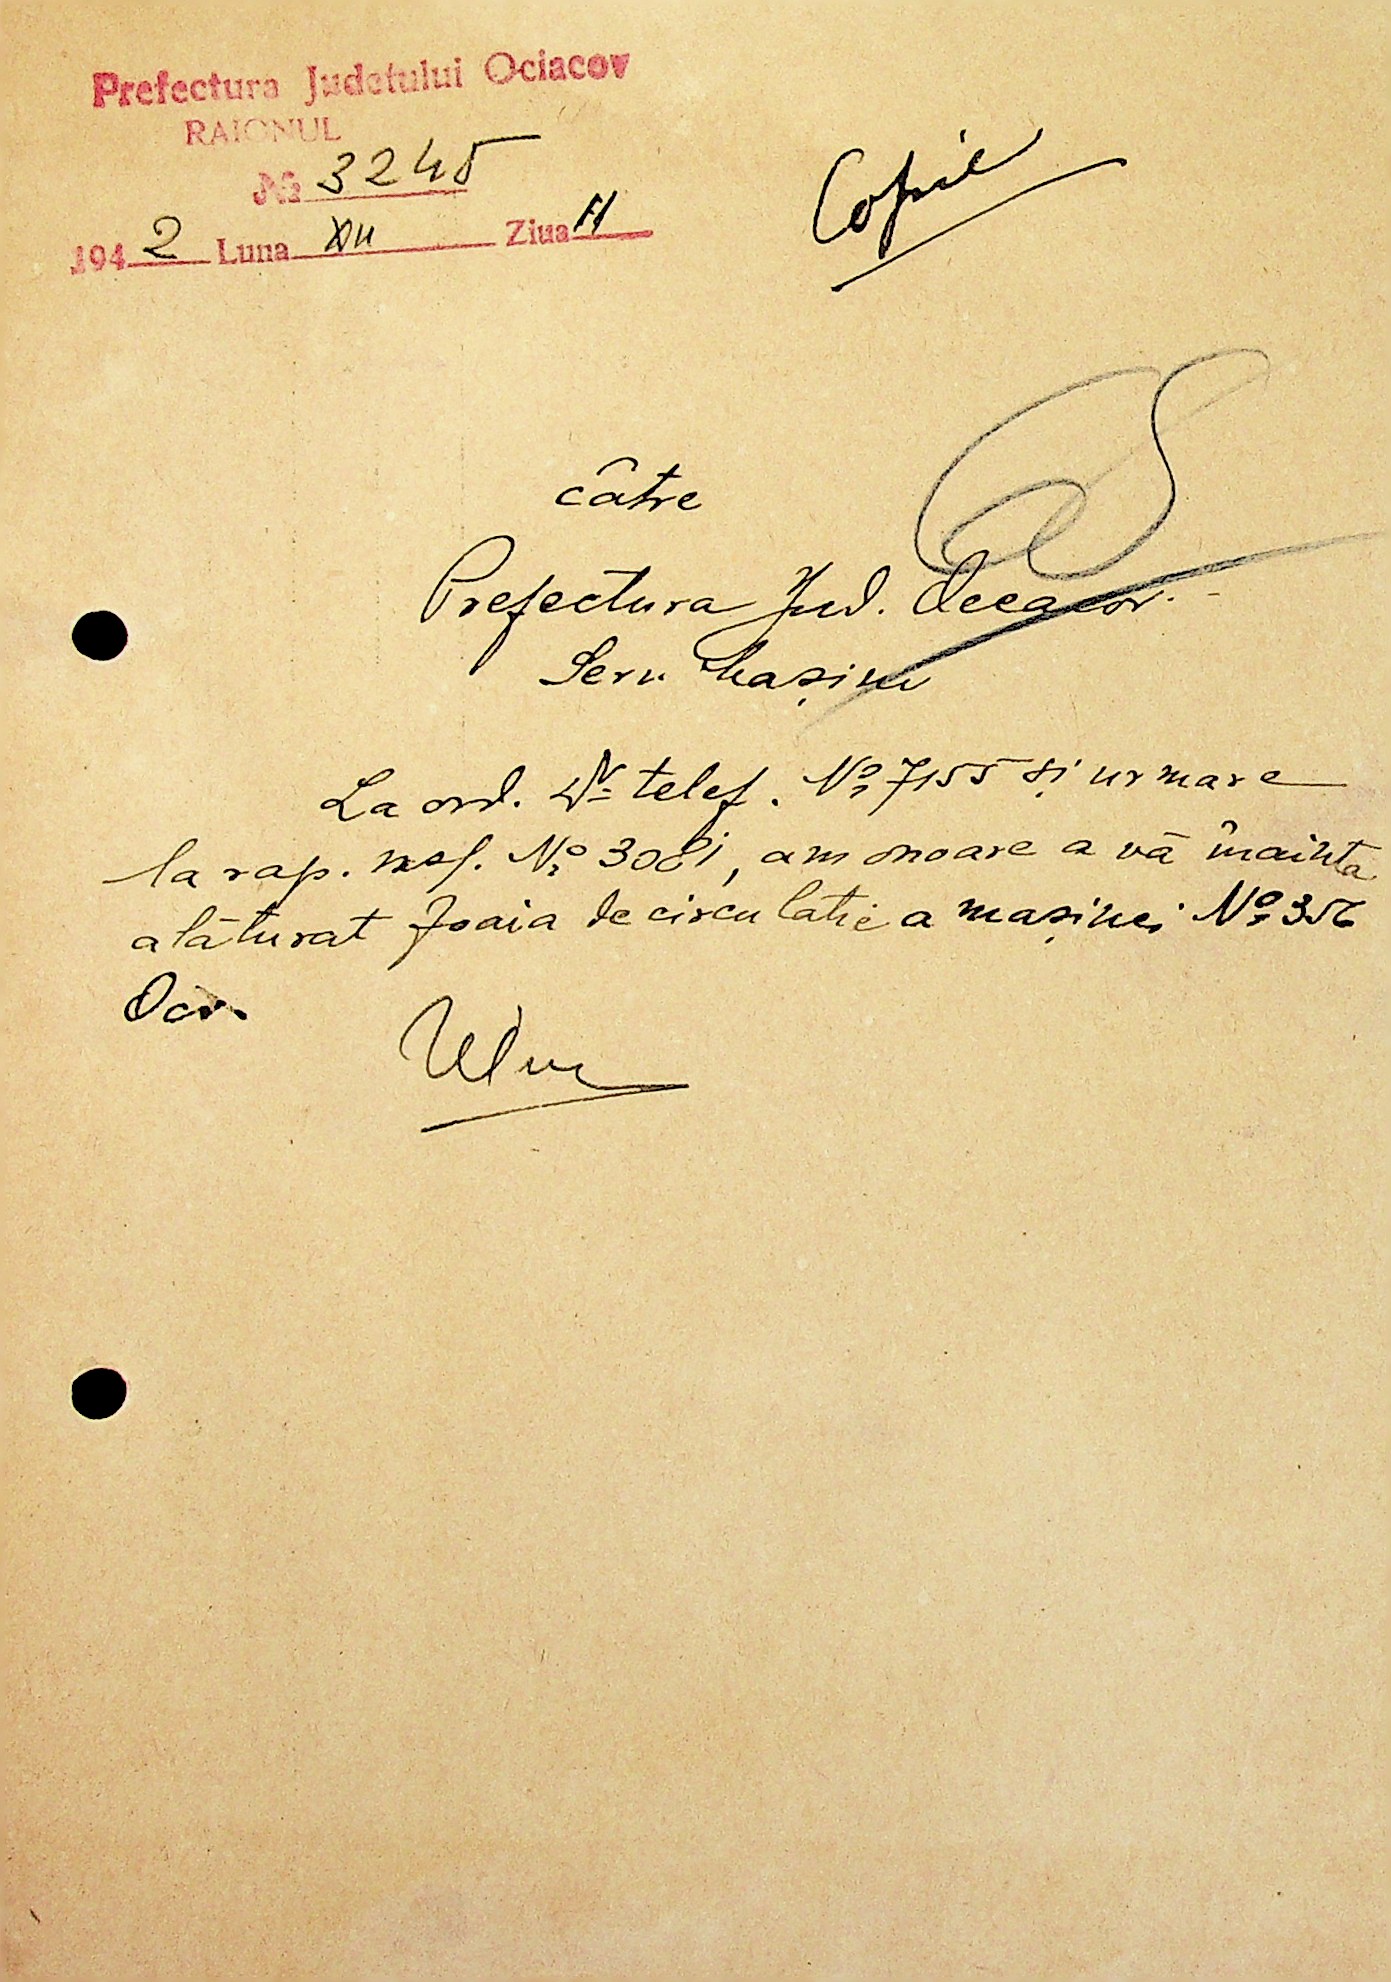 Prefectura Județului Ociacov
RAIONUL
№ 3245
1942 Luna XII Ziua 11
Copie
către
Prefectura Jud. Oceacov.
Serv. Mașini
La ord. Dv telef. No 7155 și urmare
la rap. nos. No 3081, am onoare a vă înainta
alăturat foaia de circulație a mașinei No 356
Ocv.